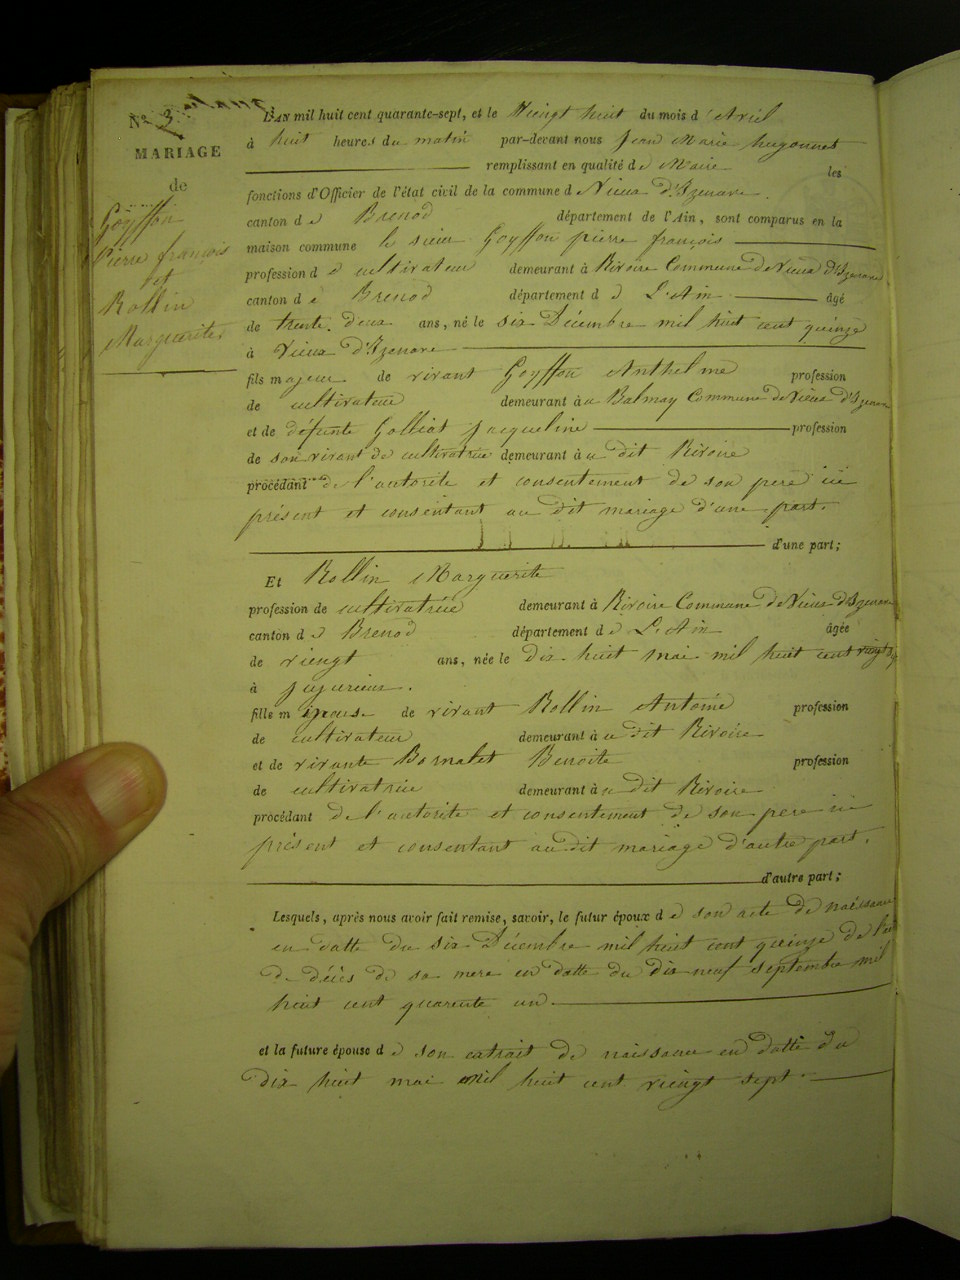 N° 3.
MARIAGE
de
Goyffon
Pierre françois
et
Rollin
Marguerite
L'AN mil huit cent quarante-sept, et le Vieingt huit du mois d'Avril
à huit heures du matin par-devant nous Jean Marie hugonnet
remplissant en qualité de Maire les
fonctions d'Officier de l'état civil de la commune d Vieux D'Izenave
canton de Brenod département de l'Ain, sont comparus en la
maison commune le sieur Goyffon pierre françois
profession de cultivateur demeurant à Rivoire Commune De Vieux D'Izenave
canton de Brenod département de L'Ain âgé
de trente deux ans, né le six Décembre mil huit cent quinze
à Vieux D'Izenave
fils majeur de vivant Goyffon Anthelme profession
de cultivateur demeurant à u Balmay Commune De Vieux D'Izenave
et de défunte Golliat Jacqueline profession
de son vivant de cultivatrice demeurant à u dit Rivoire
procédant de l'autorite et consentement de son pere ici
présent et consentant au dit mariage d'une part.
d'une part;
Et Rollin Marguerite
profession de cultivatrice demeurant à Rivoire Commune De Vieux D'Izenave
canton de Brenod département de L'Ain âgée
de vieingt ans, née le dix huit mai mil huit cent vieingt
à Jujurieux.
fille mineure de vivant Rollin Antoine profession
de cultivateur demeurant à u dit Rivoire
et de vivante Bornalet Benoite profession
de cultivatrice demeurant à u dit Rivoire
procédant de l'autorite et consentement de son pere ici
présent et consentant au dit mariage d'autre part.
d'autre part;
Lesquels, après nous avoir fait remise, savoir, le futur époux de son acte de naissance
en datte du six Décembre mil huit cent quinze de l'acte
de décès de sa mere en datte du dix neuf septembre mil
huit cent quarente un
et la future épouse de son extrait de naissance en datte du
dix huit mai mil huit cent vieingt sept.